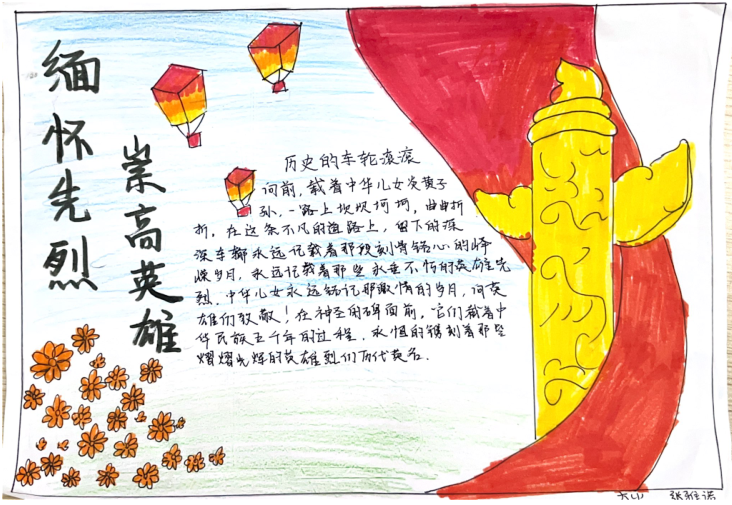 缅怀先烈
崇高英雄
历史的车轮滚滚
向前，载着中华儿女炎黄子
孙，一路上坎坎坷坷，曲曲折
折。在这条不凡的道路上，留下的深
深车辙永远记载着那段刻骨铭心的峥
嵘岁月，永远记载着那些永垂不朽的英雄先
烈，中华儿女永远铭记那激情的岁月，向英
雄们致敬！在神圣的碑面前，它们载着中
华民族五千年的过程，永恒的镌刻着那些
熠熠光辉的英雄烈们历代英名.
张雅诺